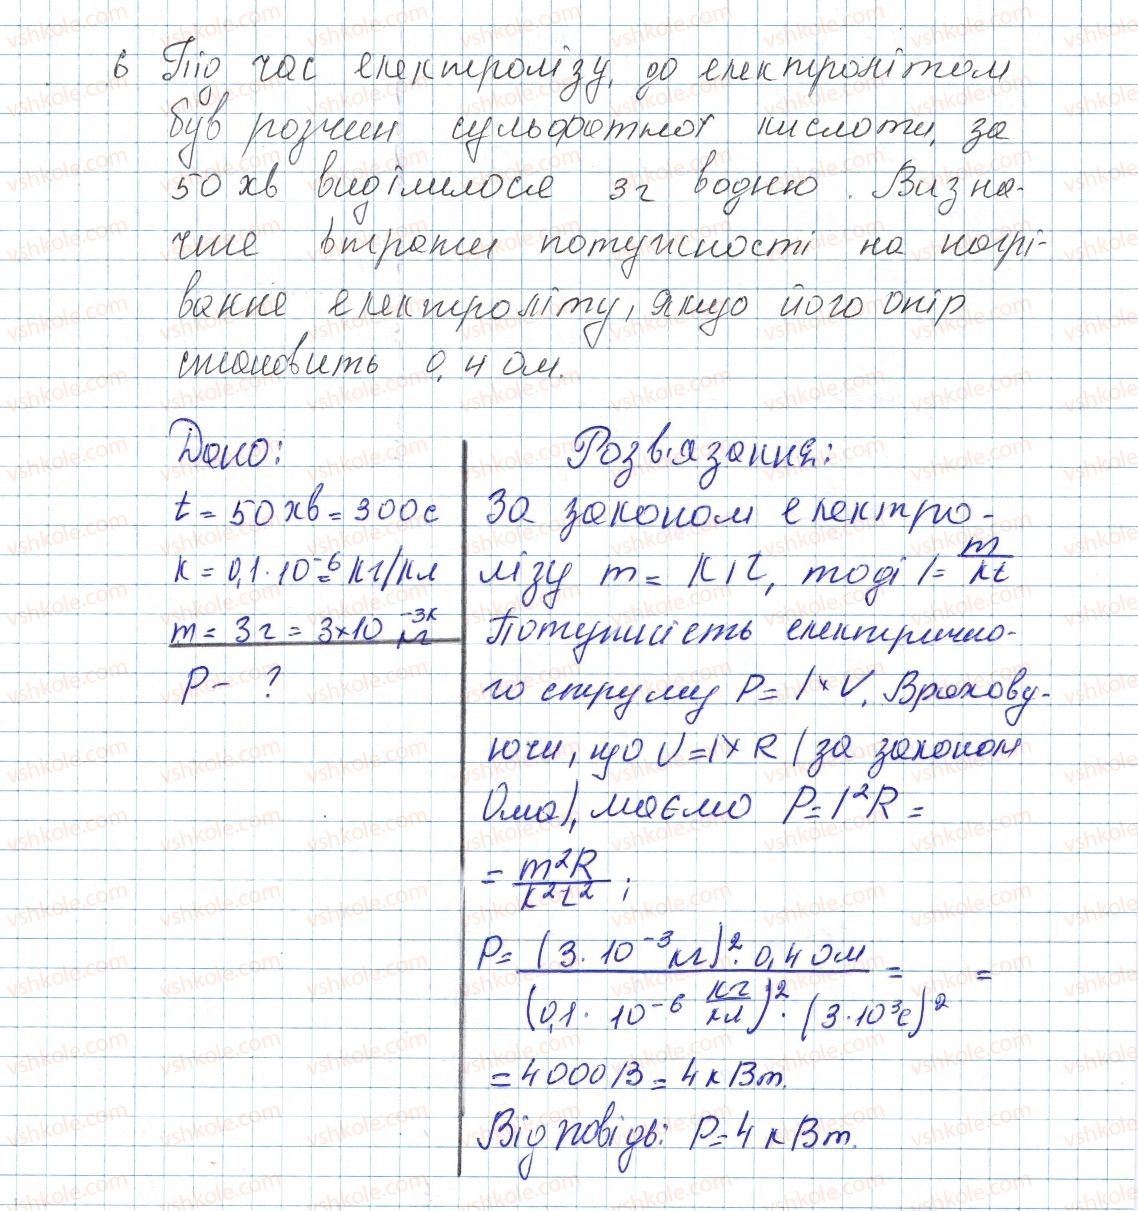 6 Під час електролізу, де електролітом
був розчин сульфатної кислоти, за
50 хв виділилося 3г водню. Визна-
чте втрати потужності на нагрі-
вання електроліту, якщо його опір
становить 0,4 Ом.
Дано:
t = 50 хв = 300с
k = 0,1 · 10⁻⁶ кг/Кл
m = 3г = 3×10⁻³ кг
P - ?
Розв'язання:
За законом електро-
лізу m = kIt, тоді I = m/kt
Потужність електрично-
го струму P = I × V. Врахову-
ючи, що V = I × R (за законом
Ома), маємо P = I²R =
= m²R / k²t² ;
P = (3 · 10⁻³ кг)² · 0,4 Ом / (0,1 · 10⁻⁶ кг/Кл)² · (3 · 10³с)² = =
= 4000 В = 4 кВт.
Відповідь: P = 4 кВт.